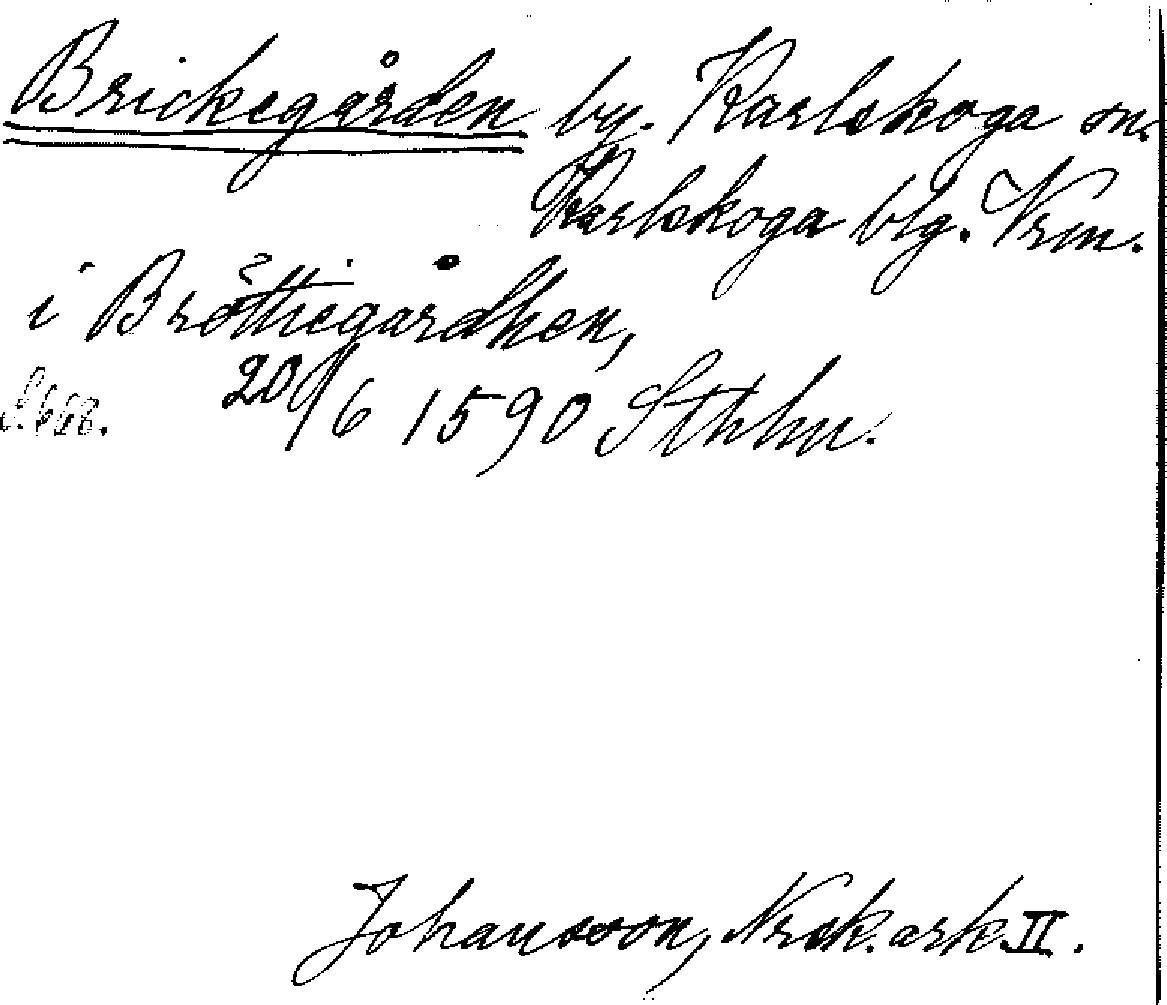 Brickegården by. Karlskoga sn.
Karlskoga blg. Vrm.
i Bröttiegårdhen,
20/6 1590 Sthhn.
Johansson, Nrsk. ark. II.